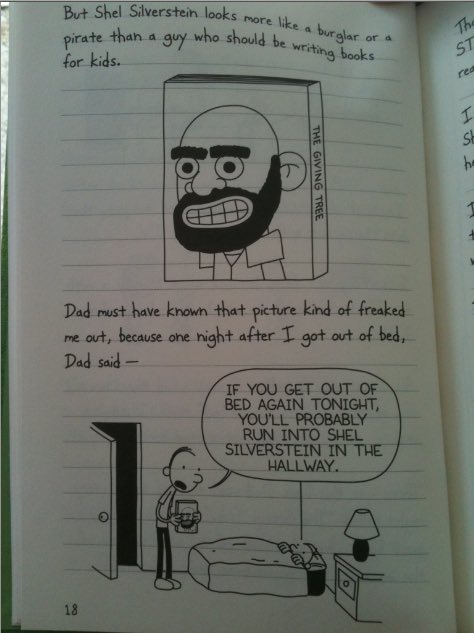 But Shel Silverstein looks more like a burglar or a
pirate than a guy who should be writing books
for kids.
THE GIVING TREE
Dad must have known that picture kind of freaked
me out, because one night after I got out of bed,
Dad said—
IF YOU GET OUT OF
BED AGAIN TONIGHT,
YOU'LL PROBABLY
RUN INTO SHEL
SILVERSTEIN IN THE
HALLWAY.
18